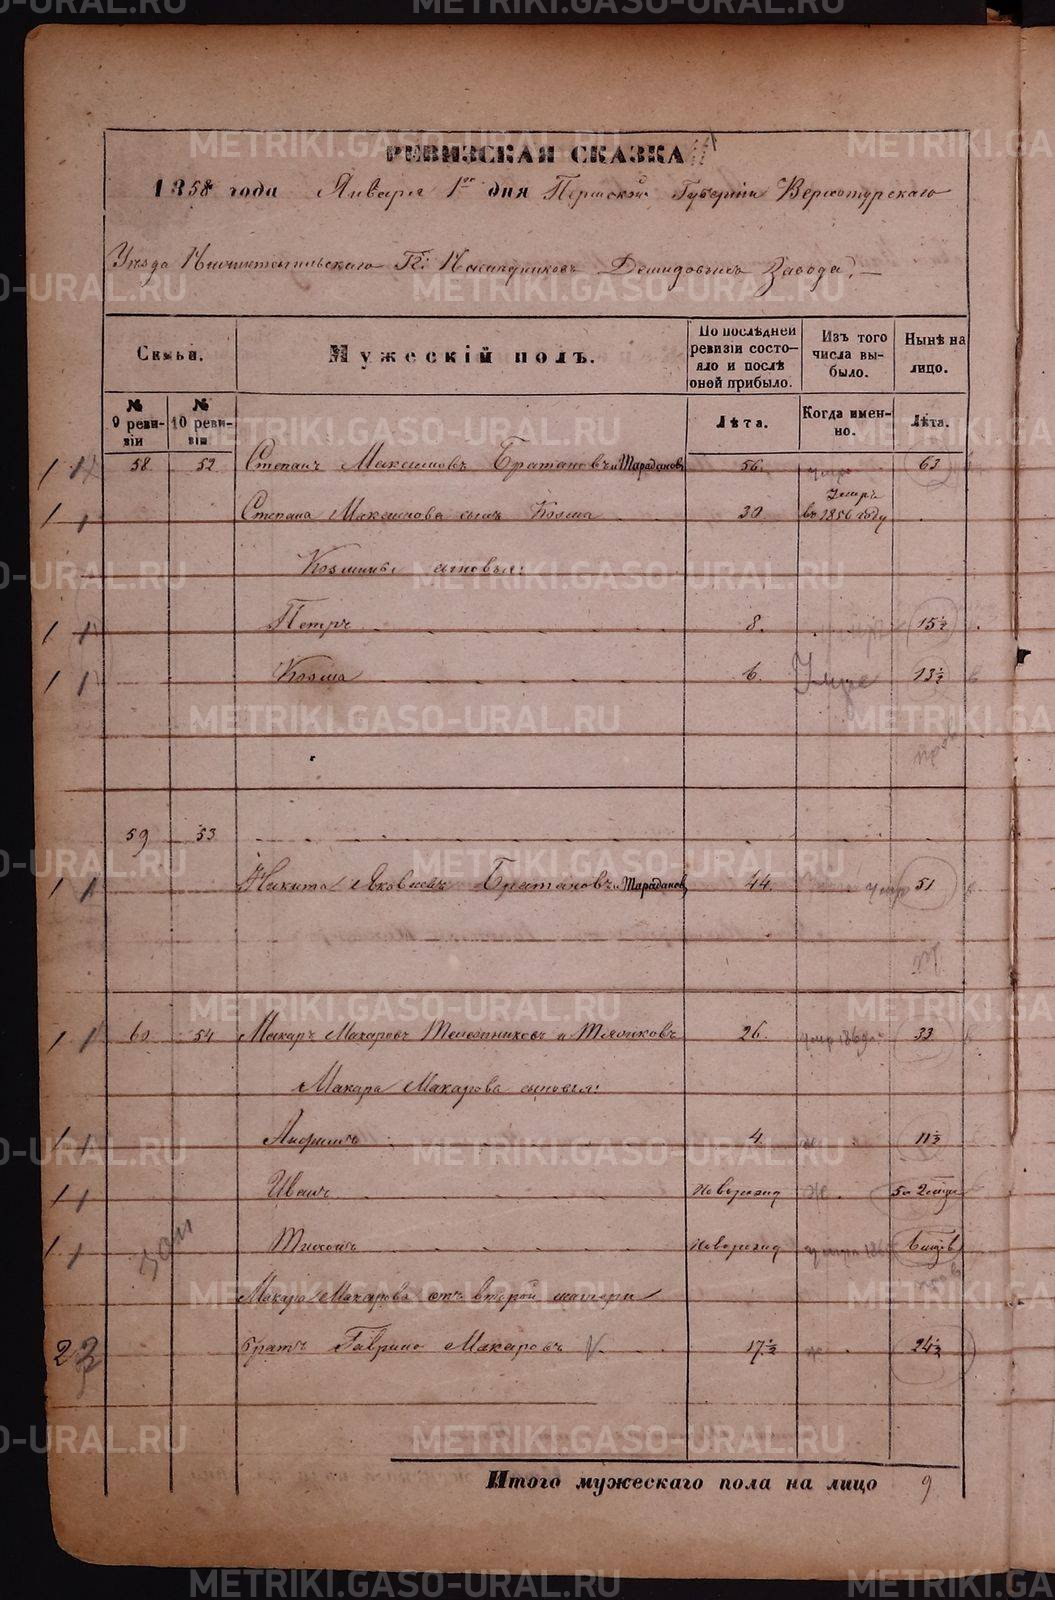 РЕВИЗСКАЯ СКАЗКА
1858 года Января 1го дня Пермской Губерніи Верхотурскаго
Уѣзда Нижнетагильскаго Гг: Наслѣдниковъ Демидовыхъ Завода.
Семьи.
Мужескій полъ.
По послѣдней ревизіи состо-
яло и послѣ
оной прибыло.
Изъ того
числа вы-
было.
Нынѣ на
лицо.
№
9 реви-
зіи
№
10 реви-
зіи
Лѣта.
Когда имен-
но.
Лѣта.
1 58 52 Степанъ Максимовъ Братановъ и Тараданов 56. умре 63
1 1 Степана Максимова сынъ Козма 30 Умеръ
въ 1856 году
Козмины сыновья:
1 Петръ 8. 15½
1 1 Козма 6. Умре 13½
59 53
1 1 Никита Яковлевъ Братановъ и Тараданов 44. умр 51
1 1 60 54 Макаръ Макаровъ 26. 33
Макара Макарова сыновья:
1 1 4. 11½
1 1 Иванъ новорожд
1 1 Тихонъ новорожд
Макара Макарова отъ второй матери
2 братъ Гаврило Макаровъ 17½ 24½
Итого мужескаго пола на лицо 9
METRIKI.GASO-URAL.RU